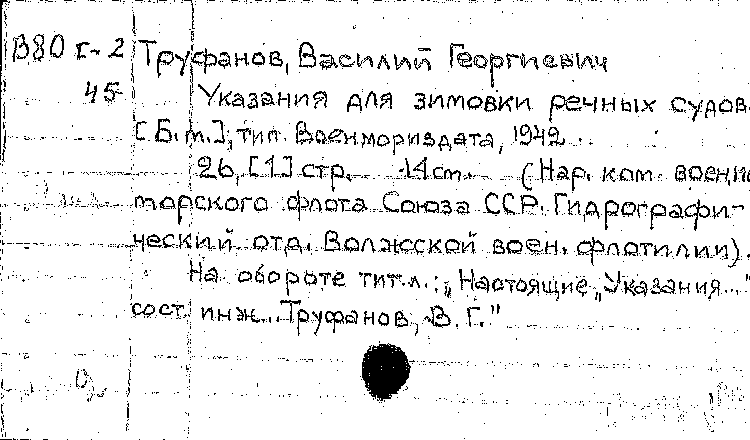 В80 г-2 Труфанов, Василий Георгиевич
45 Указания для зимовки речных судов.
[Б.м.], тип. Военмориздата, 1942.
26, [1] стр. 14 см. (Нар. ком. военно
морского флота Союза ССР. Гидрографи-
ческий отд. Волжской воен. флотилии).
На обороте тит. л.: „Настоящие „Указания..."
сост. инж. Труфанов, В. Г."